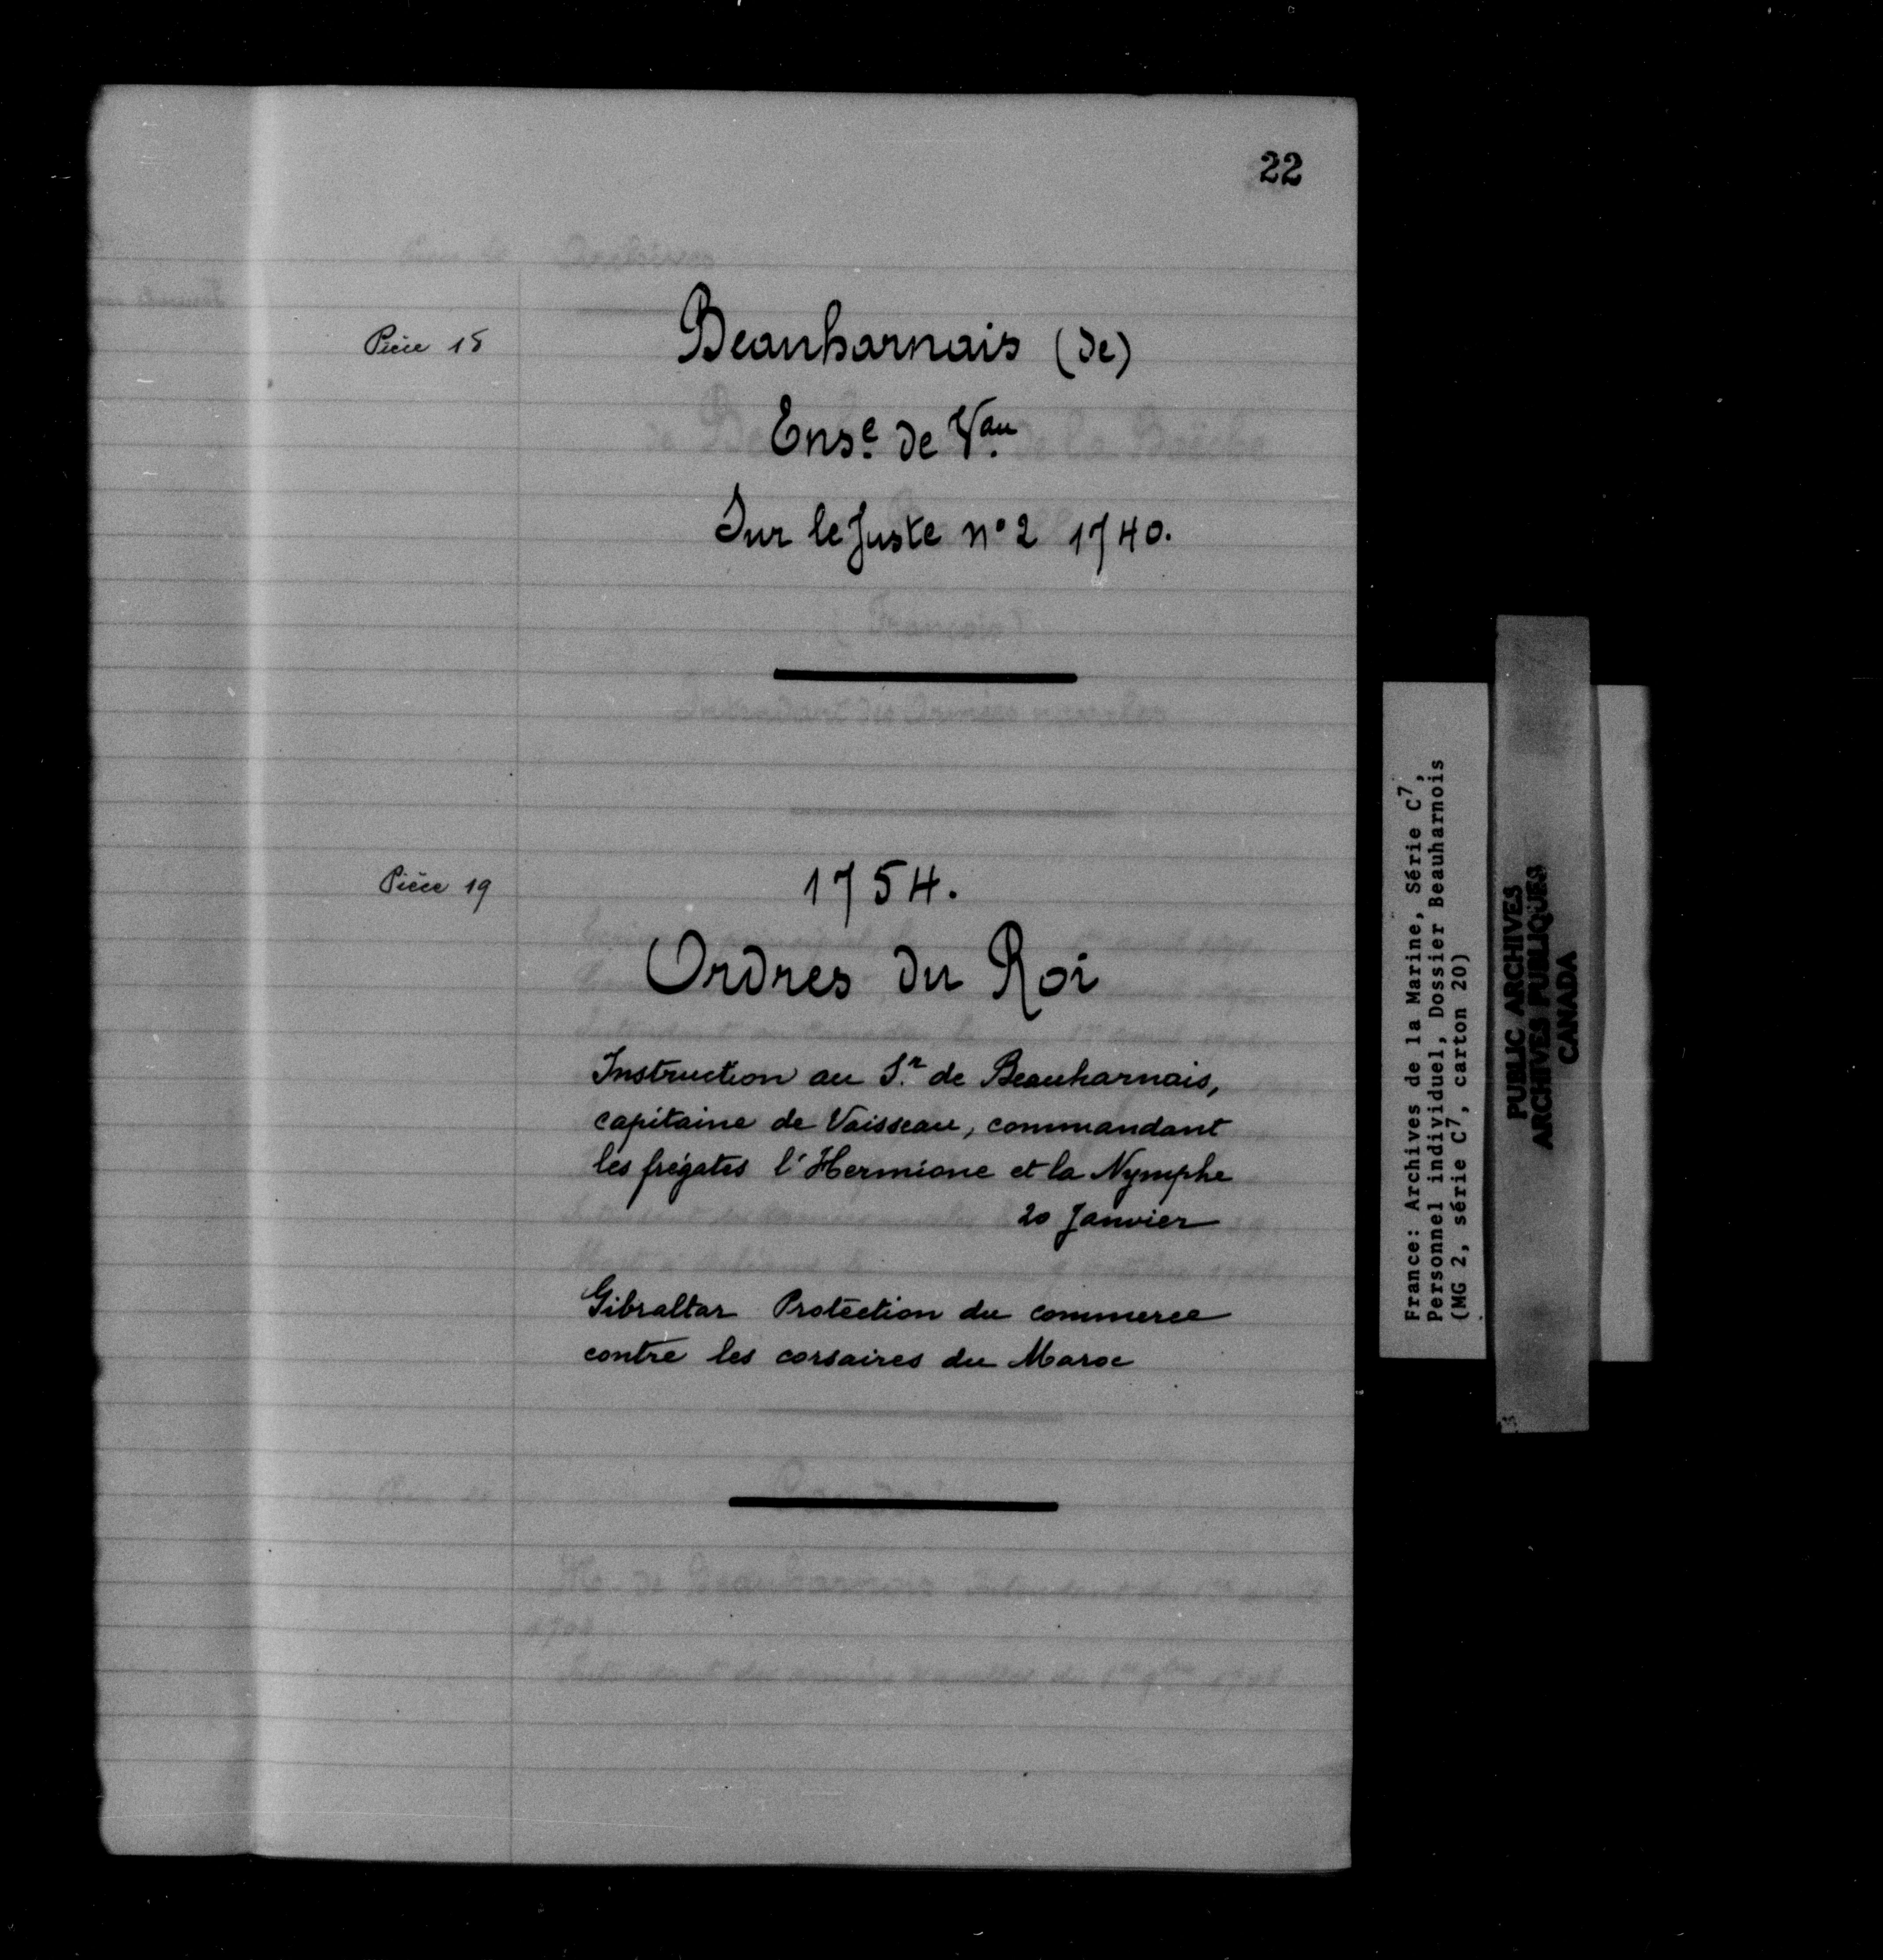 22
Pièce 18
Beauharnais (de)
Ens.e de V.au
Sur le Juste n° 2 1740.
Pièce 19
1754.
Ordres du Roi
Instruction au S.r de Beauharnais,
capitaine de Vaisseau, commandant
les frégates l'Hermione et la Nymphe
20 Janvier
Gibraltar Protection du commerce
contre les corsaires du Maroc
France: Archives de la Marine, Série C7,
Personnel individuel, Dossier Beauharnois
(MG 2, série C7, carton 20)
PUBLIC ARCHIVES
ARCHIVES PUBLIQUES
CANADA